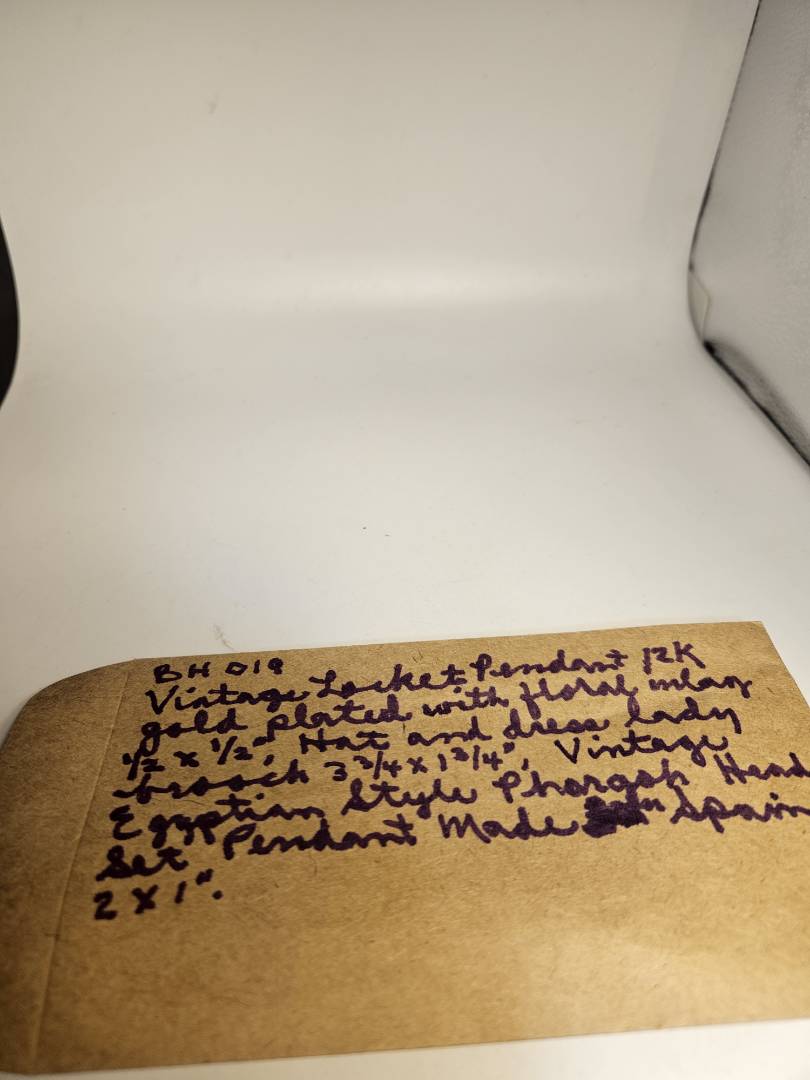 BH 019
Vintage Locket Pendant 12K
gold plated with floral inlay
1/2 x 1/2", Hat and dress lady
brooch 3 3/4 x 1 3/4", Vintage
Egyptian Style Pharaoh Head
Set Pendant Made Spain
2 x 1".